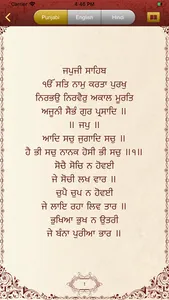 4:48 PM
Punjabi English Hindi
ਜਪੁਜੀ ਸਾਹਿਬ
ੴ ਸਤਿ ਨਾਮੁ ਕਰਤਾ ਪੁਰਖੁ
ਨਿਰਭਉ ਨਿਰਵੈਰੁ ਅਕਾਲ ਮੂਰਤਿ
ਅਜੂਨੀ ਸੈਭੰ ਗੁਰ ਪ੍ਰਸਾਦਿ ॥
॥ ਜਪੁ ॥
ਆਦਿ ਸਚੁ ਜੁਗਾਦਿ ਸਚੁ ॥
ਹੈ ਭੀ ਸਚੁ ਨਾਨਕ ਹੋਸੀ ਭੀ ਸਚੁ ॥੧॥
ਸੋਚੈ ਸੋਚਿ ਨ ਹੋਵਈ
ਜੇ ਸੋਚੀ ਲਖ ਵਾਰ ॥
ਚੁਪੈ ਚੁਪ ਨ ਹੋਵਈ
ਜੇ ਲਾਇ ਰਹਾ ਲਿਵ ਤਾਰ ॥
ਭੁਖਿਆ ਭੁਖ ਨ ਉਤਰੀ
ਜੇ ਬੰਨਾ ਪੁਰੀਆ ਭਾਰ ॥
1